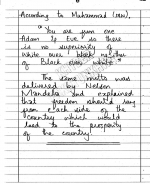 According to Muhammad (PBUH),
"You are sum one
Adam & Eve so there
is no superiority of
white over black neither
of Black over white."
The same motto was
delivered by Nelson
Mandela and explained
that freedom should ray
from each side of the
country which would
lead to the prosperity
of the country.